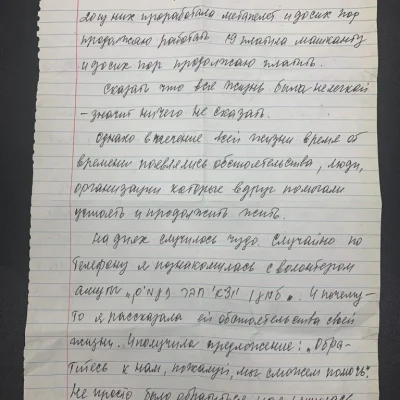 20 из них проработала метапелет и до сих пор
продолжаю работать 19 платила машканту
и до сих пор продолжаю платить.
Сказать что вся жизнь была нелегкой
- значит ничего не сказать.
Однако в течение всей жизни время от
времени появлялись обстоятельства, люди,
организации которые вдруг помогали
устоять и продолжить жить.
На днях случилось чудо. Случайно по
телефону я познакомилась с волонтером
амуты „ “. И почему-
то я рассказала ей обстоятельства своей
жизни. И получила предложение: „Обра-
титесь к нам, пожалуй, мы сможем помочь“.
Не просто было обратиться